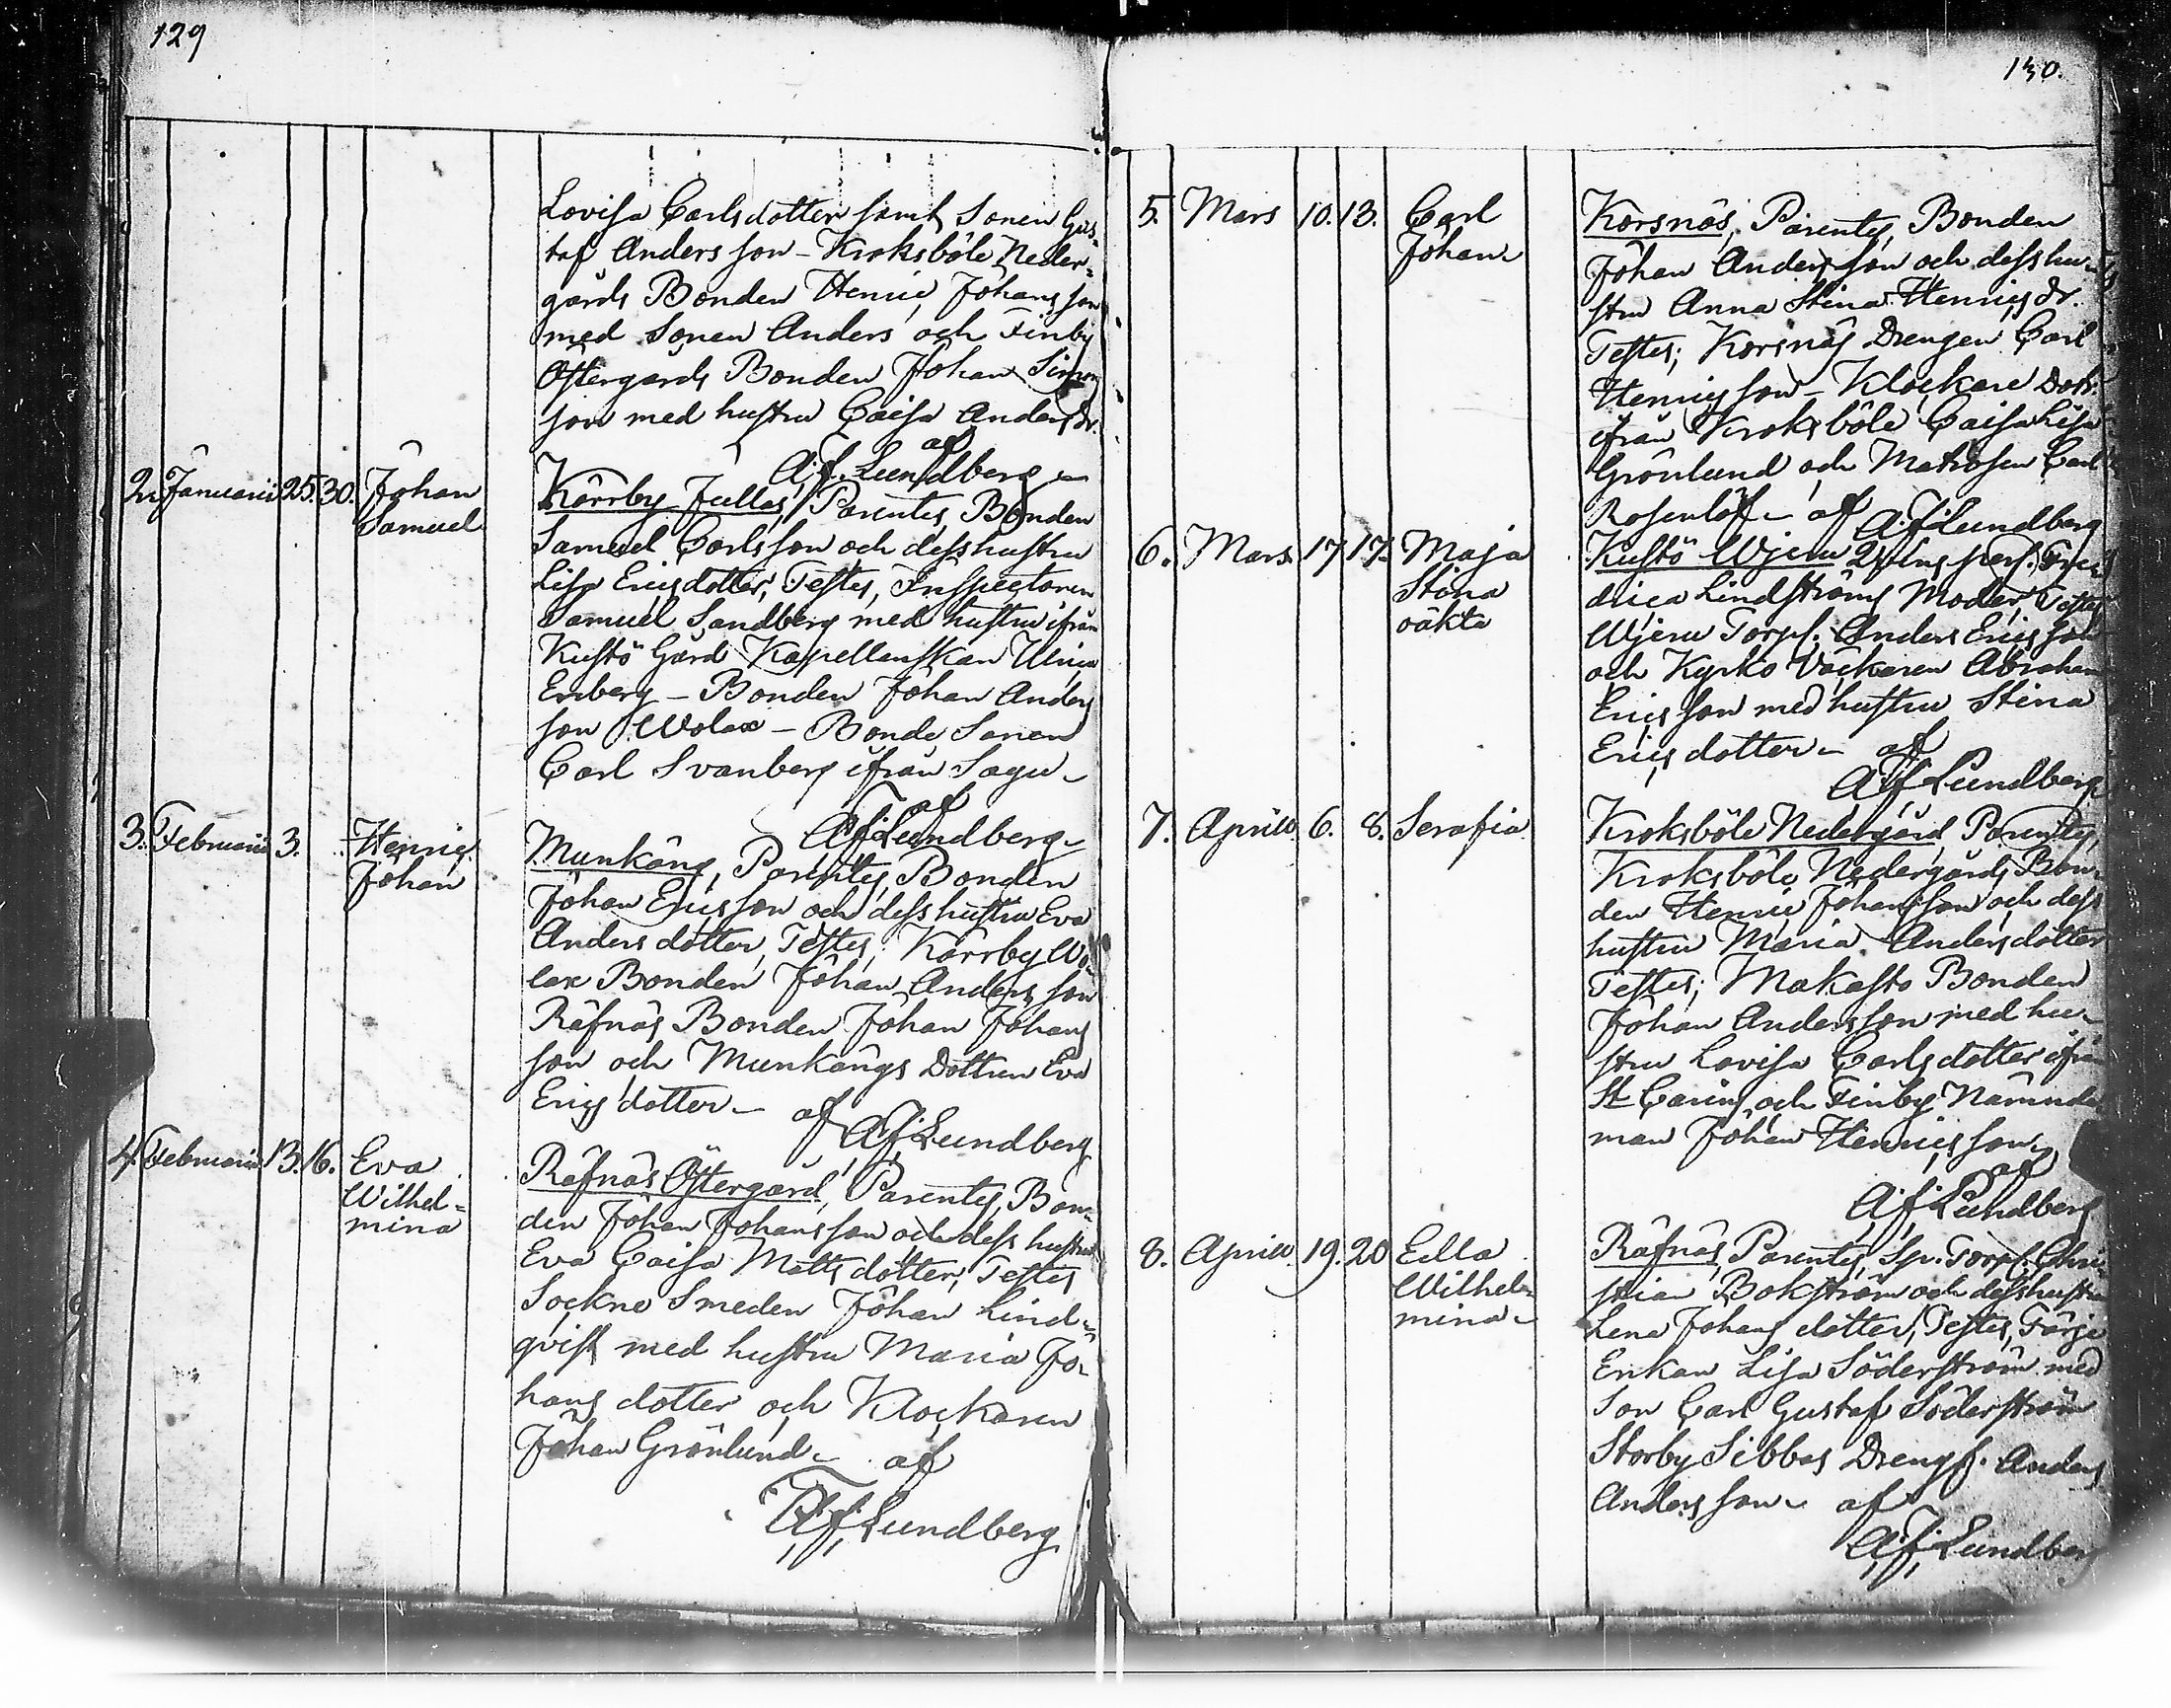 129
Lovisa Carlsdotter samt Sonen Gus-
taf Anders son - Kroksböle Neder-
gårds Bonden Henric Johans son
med Sonen Anders och Finby
Östergårds Bonden Johan Simon
son med hustru Caisa Anders dr.
af
A.f. Lundberg
2. Januarii 25. 30. Johan
Samuel
Kärrby Jullas, Parentes, Bonden
Samuel Carlsson och dess hustru
Lisa Ericsdotter, Testes, Inspectoren
Samuel Sandberg med hustru ifrån
Kustö Gård Kapellanskan Ulrica
Enberg - Bonden Johan Anders
son Wolax - Bonde Sonen
Carl Svanberg ifrån Sagu
af
A.f. Lundberg
3. Februarii 3. Henric
Johan
Munkäng, Parentes, Bonden
Johan Ericsson och dess hustru Eva
Anders dotter, Testes, Kärrby Wo-
lax Bonden Johan Anders son
Räfnäs Bonden Johan Johans
son och Munkängs Dottren Eva
Erics dotter - af
A.f. Lundberg
4. Februarii 13. 16. Eva
Wilhel=
mina
Räfnäs Östergård, Parentes, Bon-
den Johan Johansson och dess hustru
Eva Caisa Matts dotter, Testes
Sockne Smeden Johan Lind-
qvist med hustru Maria Jo-
hans dotter och Klockaren
Johan Grönlund - af
A.f. Lundberg
130.
5. Mars 10. 13. Carl
Johan
Korsnäs, Parentes, Bonden
Johan Anders son och dess hu-
stru Anna Stina Henrics dr.
Testes; Korsnäs Drengen Carl
Henrics son - Klockare Dotr.
ifrån Kroksböle Caisa Lisa
Grönlund och Matrosen Carl
Rosenlöf - af A.f. Lundberg
6. Mars 17 17. Maja
Stina
oäkta
Kustö Wjeru Qvins pers. Fred-
drica Lindströms Moder, Testes
Wjeru Torps. Anders Erics son
och Kyrko Väckaren Abraham
Erics son med hustru Stina
Erics dotter - af
A.f. Lundberg
7. Aprill 6. 8. Serafia
Kroksböle Nedergård, Parentes,
Kroksböle Nedergårds Bon-
den Henric Johansson och dess
hustru Maria Andersdotter
Testes; Makasto Bonden
Johan Andersson med hu-
stru Lovisa Carlsdotter ifrån
St Carins och Finby Nämnde
man Johan Henrics son
af
A.f. Lundberg
8. Aprill 19. 20 Edla
Wilhel-
mina
Räfnäs, Parentes, Sp. Torps. Chri-
stian Bokström och dess hustru
Lena Johans dotter, Testes, Färje
Enkan Lisa Söderström med
Son Carl Gustaf Söderström
Storby Sibbas Drengs. Anders
Anders son - af
A.f. Lundberg